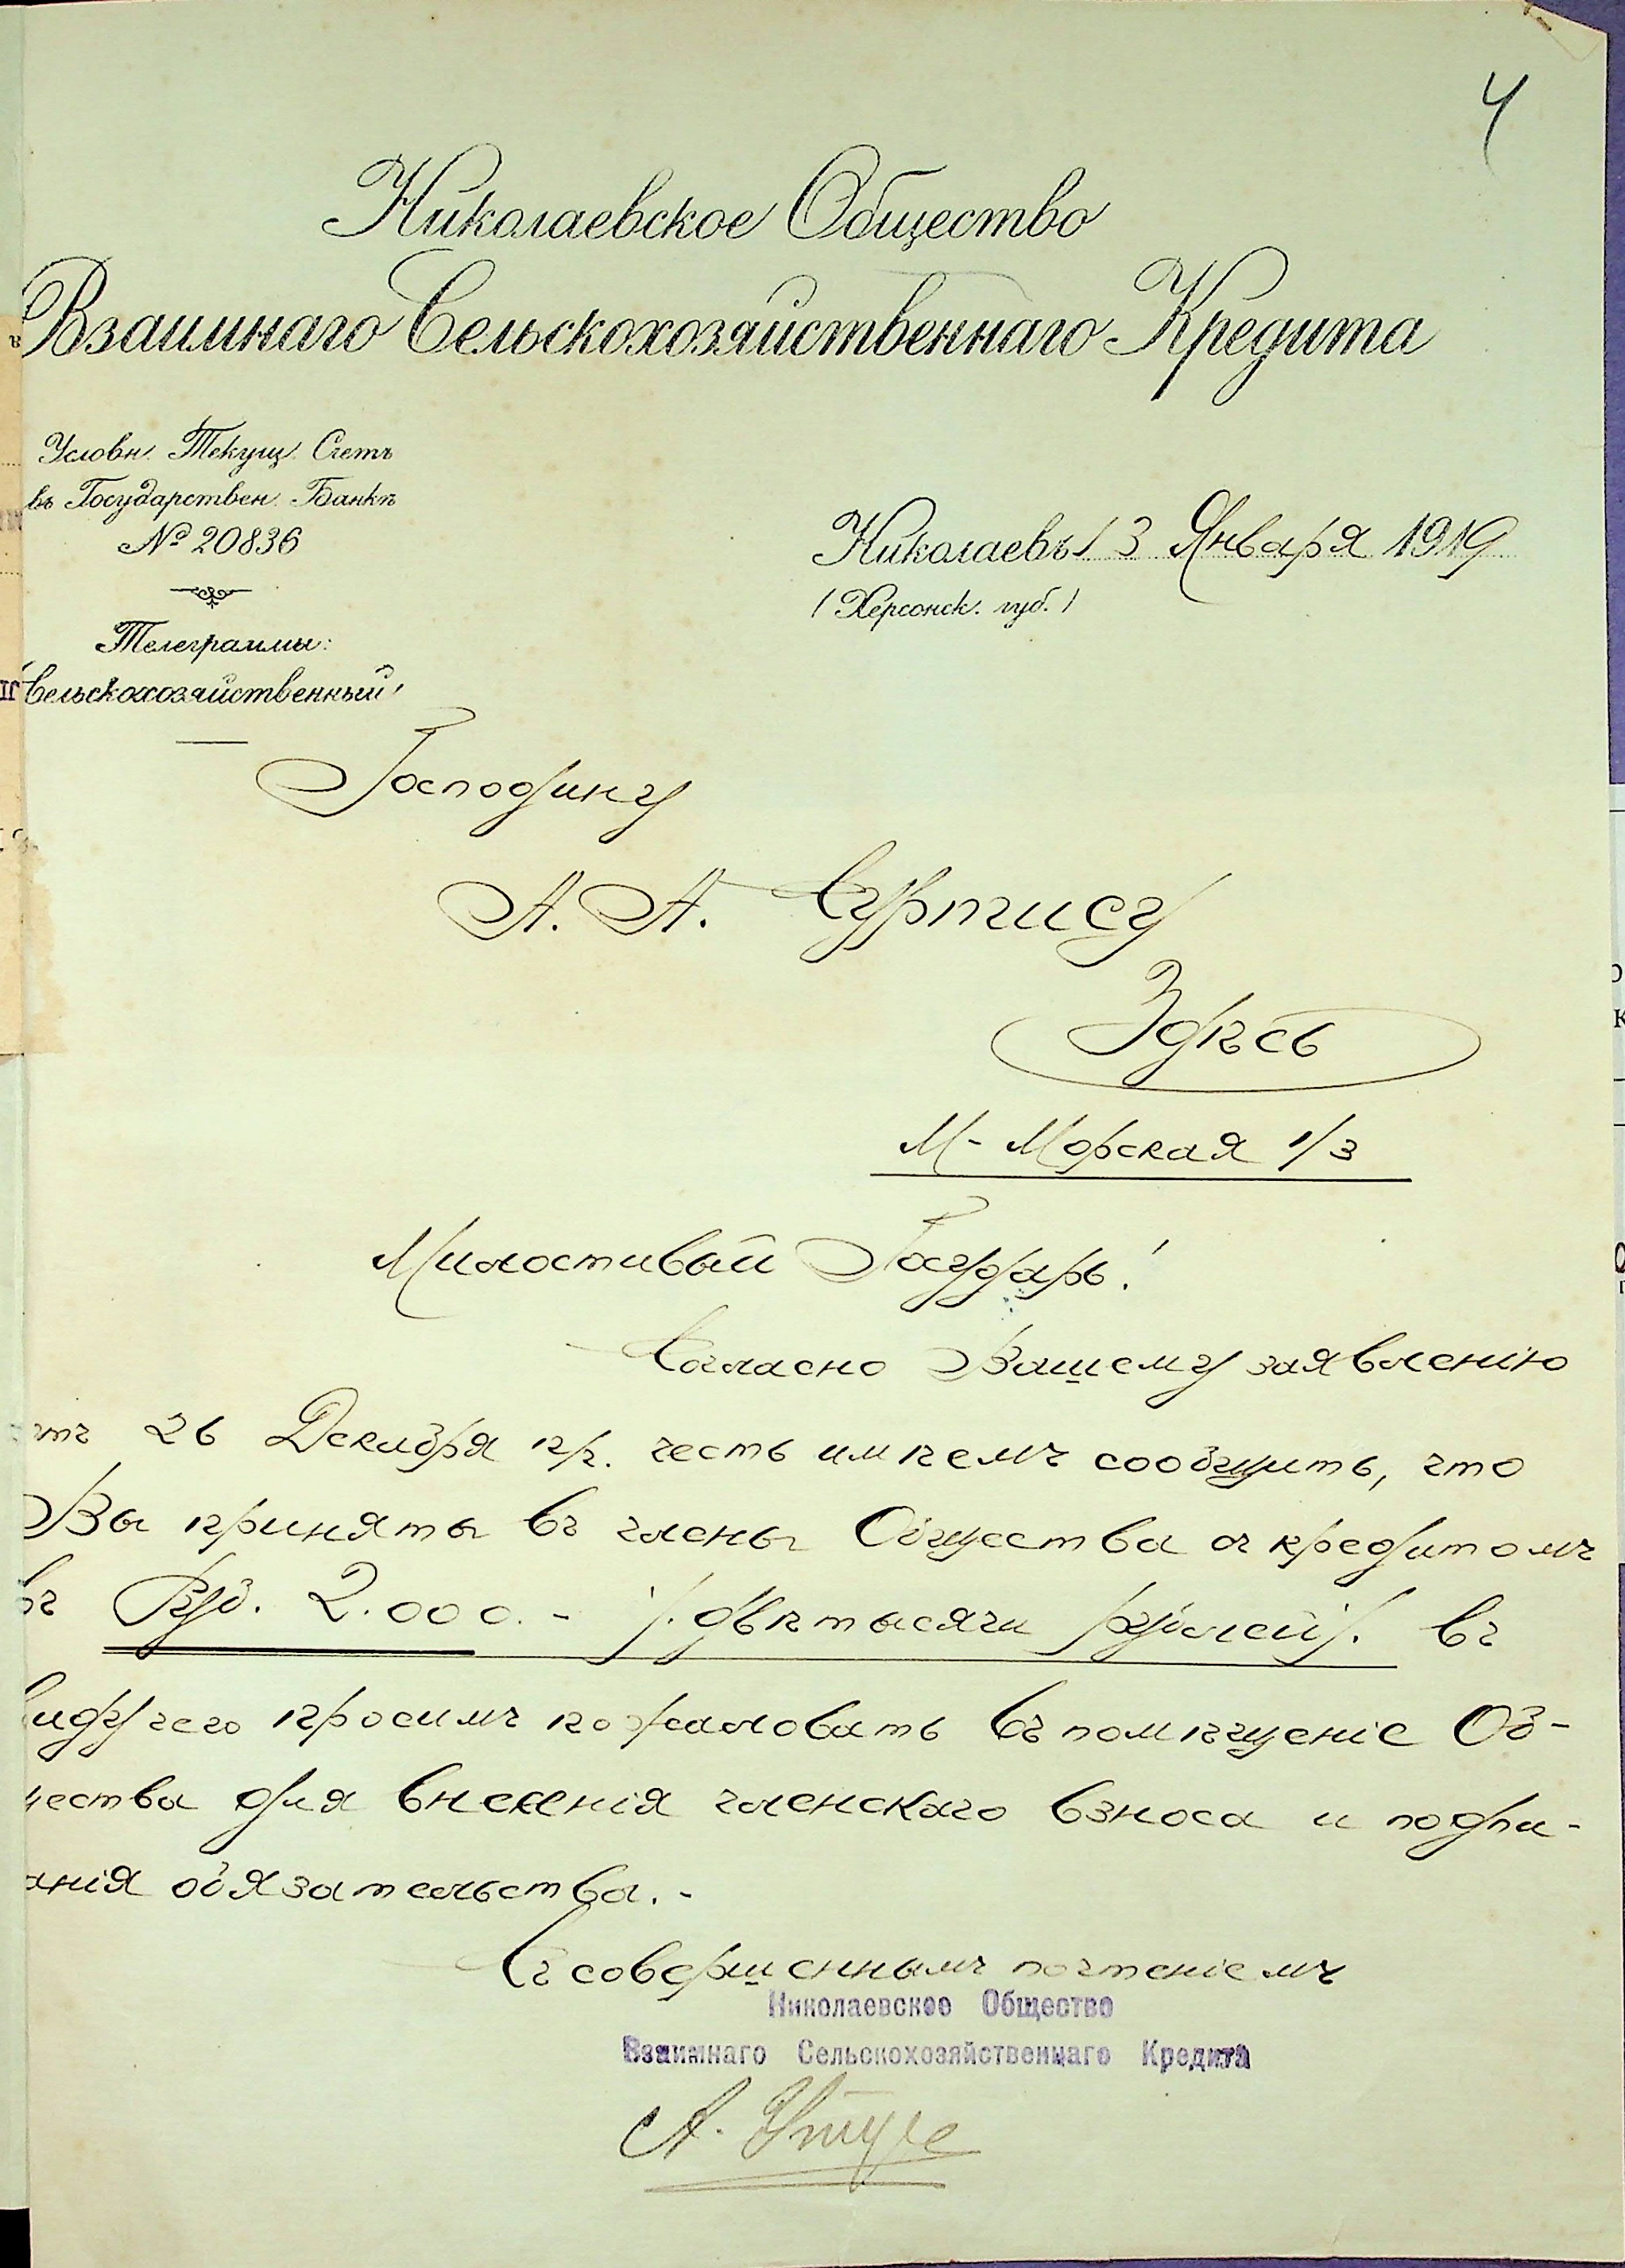 4
Николаевское Общество
Взаимнаго Сельскохозяйственнаго Кредита
Условн. Текущ. Счетъ
въ Государствен. Банкѣ
№ 20836
Телеграммы:
Сельскохозяйственный
Николаевъ 13 Января 1919
(Херсонск. губ.)
Господину
А. А. Суртису
Здѣсь
М-Морская 1/3
Милостивый Государь!
Согласно Вашему заявленію
отъ 26 Декабря пр. честь имѣемъ сообщить, что
Вы приняты въ члены Общества съ кредитомъ
въ Руб. 2.000.- /.двѣ тысячи рублей/. въ
виду чего просимъ пожаловать въ помѣщеніе Об-
щества для внесенія членскаго взноса и подпи-
санія обязательства.-
Съ совершеннымъ почтеніемъ
Николаевское Общество
Взаимнаго Сельскохозяйственнаго Кредита